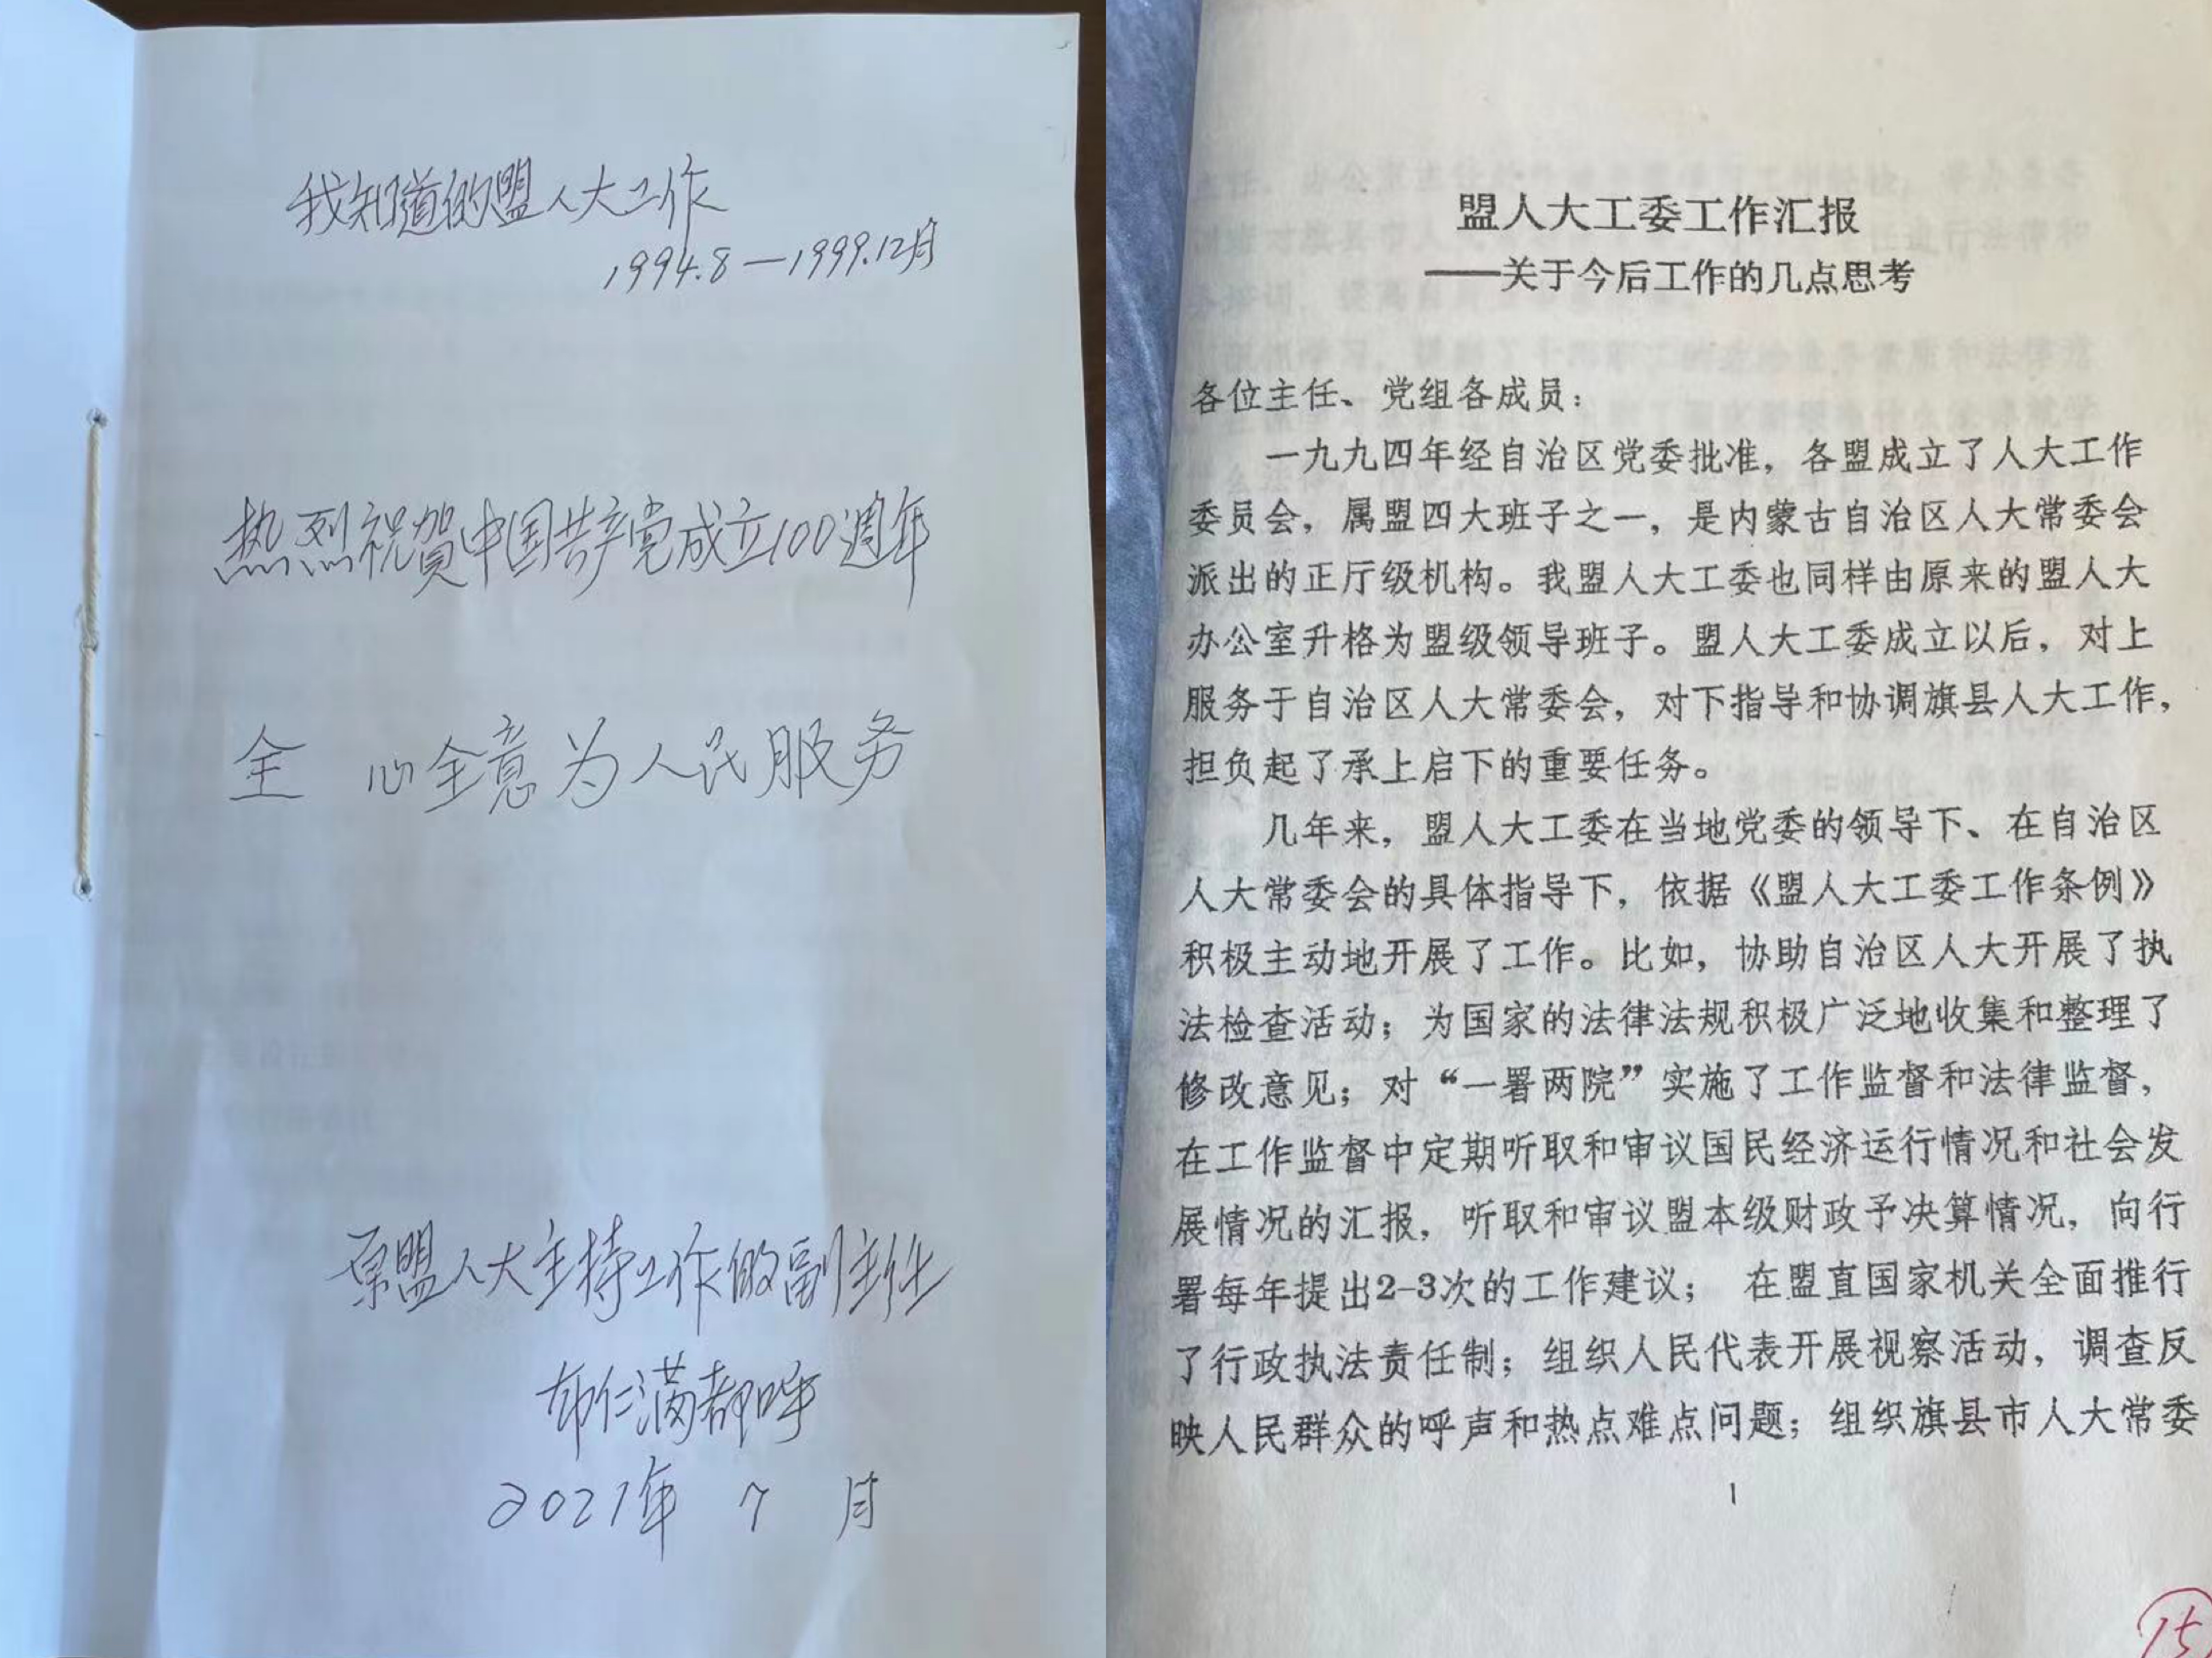 我知道的盟人大工作
1994.8—1999.12月
热烈祝贺中国共产党成立100週年
全 心全意为人民服务
原盟人大主持工作的副主任
布仁满都呼
2021年 7 月
盟人大工委工作汇报
——关于今后工作的几点思考
各位主任、党组各成员：
一九九四年经自治区党委批准，各盟成立了人大工作
委员会，属盟四大班子之一，是内蒙古自治区人大常委会
派出的正厅级机构。我盟人大工委也同样由原来的盟人大
办公室升格为盟级领导班子。盟人大工委成立以后，对上
服务于自治区人大常委会，对下指导和协调旗县人大工作，
担负起了承上启下的重要任务。
几年来，盟人大工委在当地党委的领导下、在自治区
人大常委会的具体指导下，依据《盟人大工委工作条例》
积极主动地开展了工作。比如，协助自治区人大开展了执
法检查活动；为国家的法律法规积极广泛地收集和整理了
修改意见；对“一署两院”实施了工作监督和法律监督，
在工作监督中定期听取和审议国民经济运行情况和社会发
展情况的汇报，听取和审议盟本级财政予决算情况，向行
署每年提出2-3次的工作建议； 在盟直国家机关全面推行
了行政执法责任制；组织人民代表开展视察活动，调查反
映人民群众的呼声和热点难点问题；组织旗县市人大常委
1
15